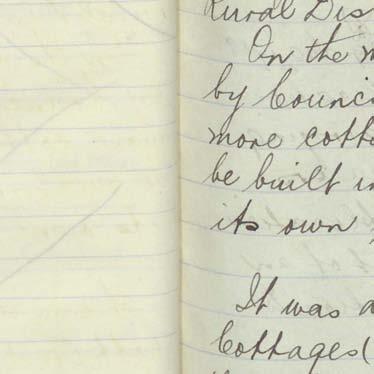 Rural Dis
On the m
by Counci
more cotta
be built in
its own
It was a
Cottages (